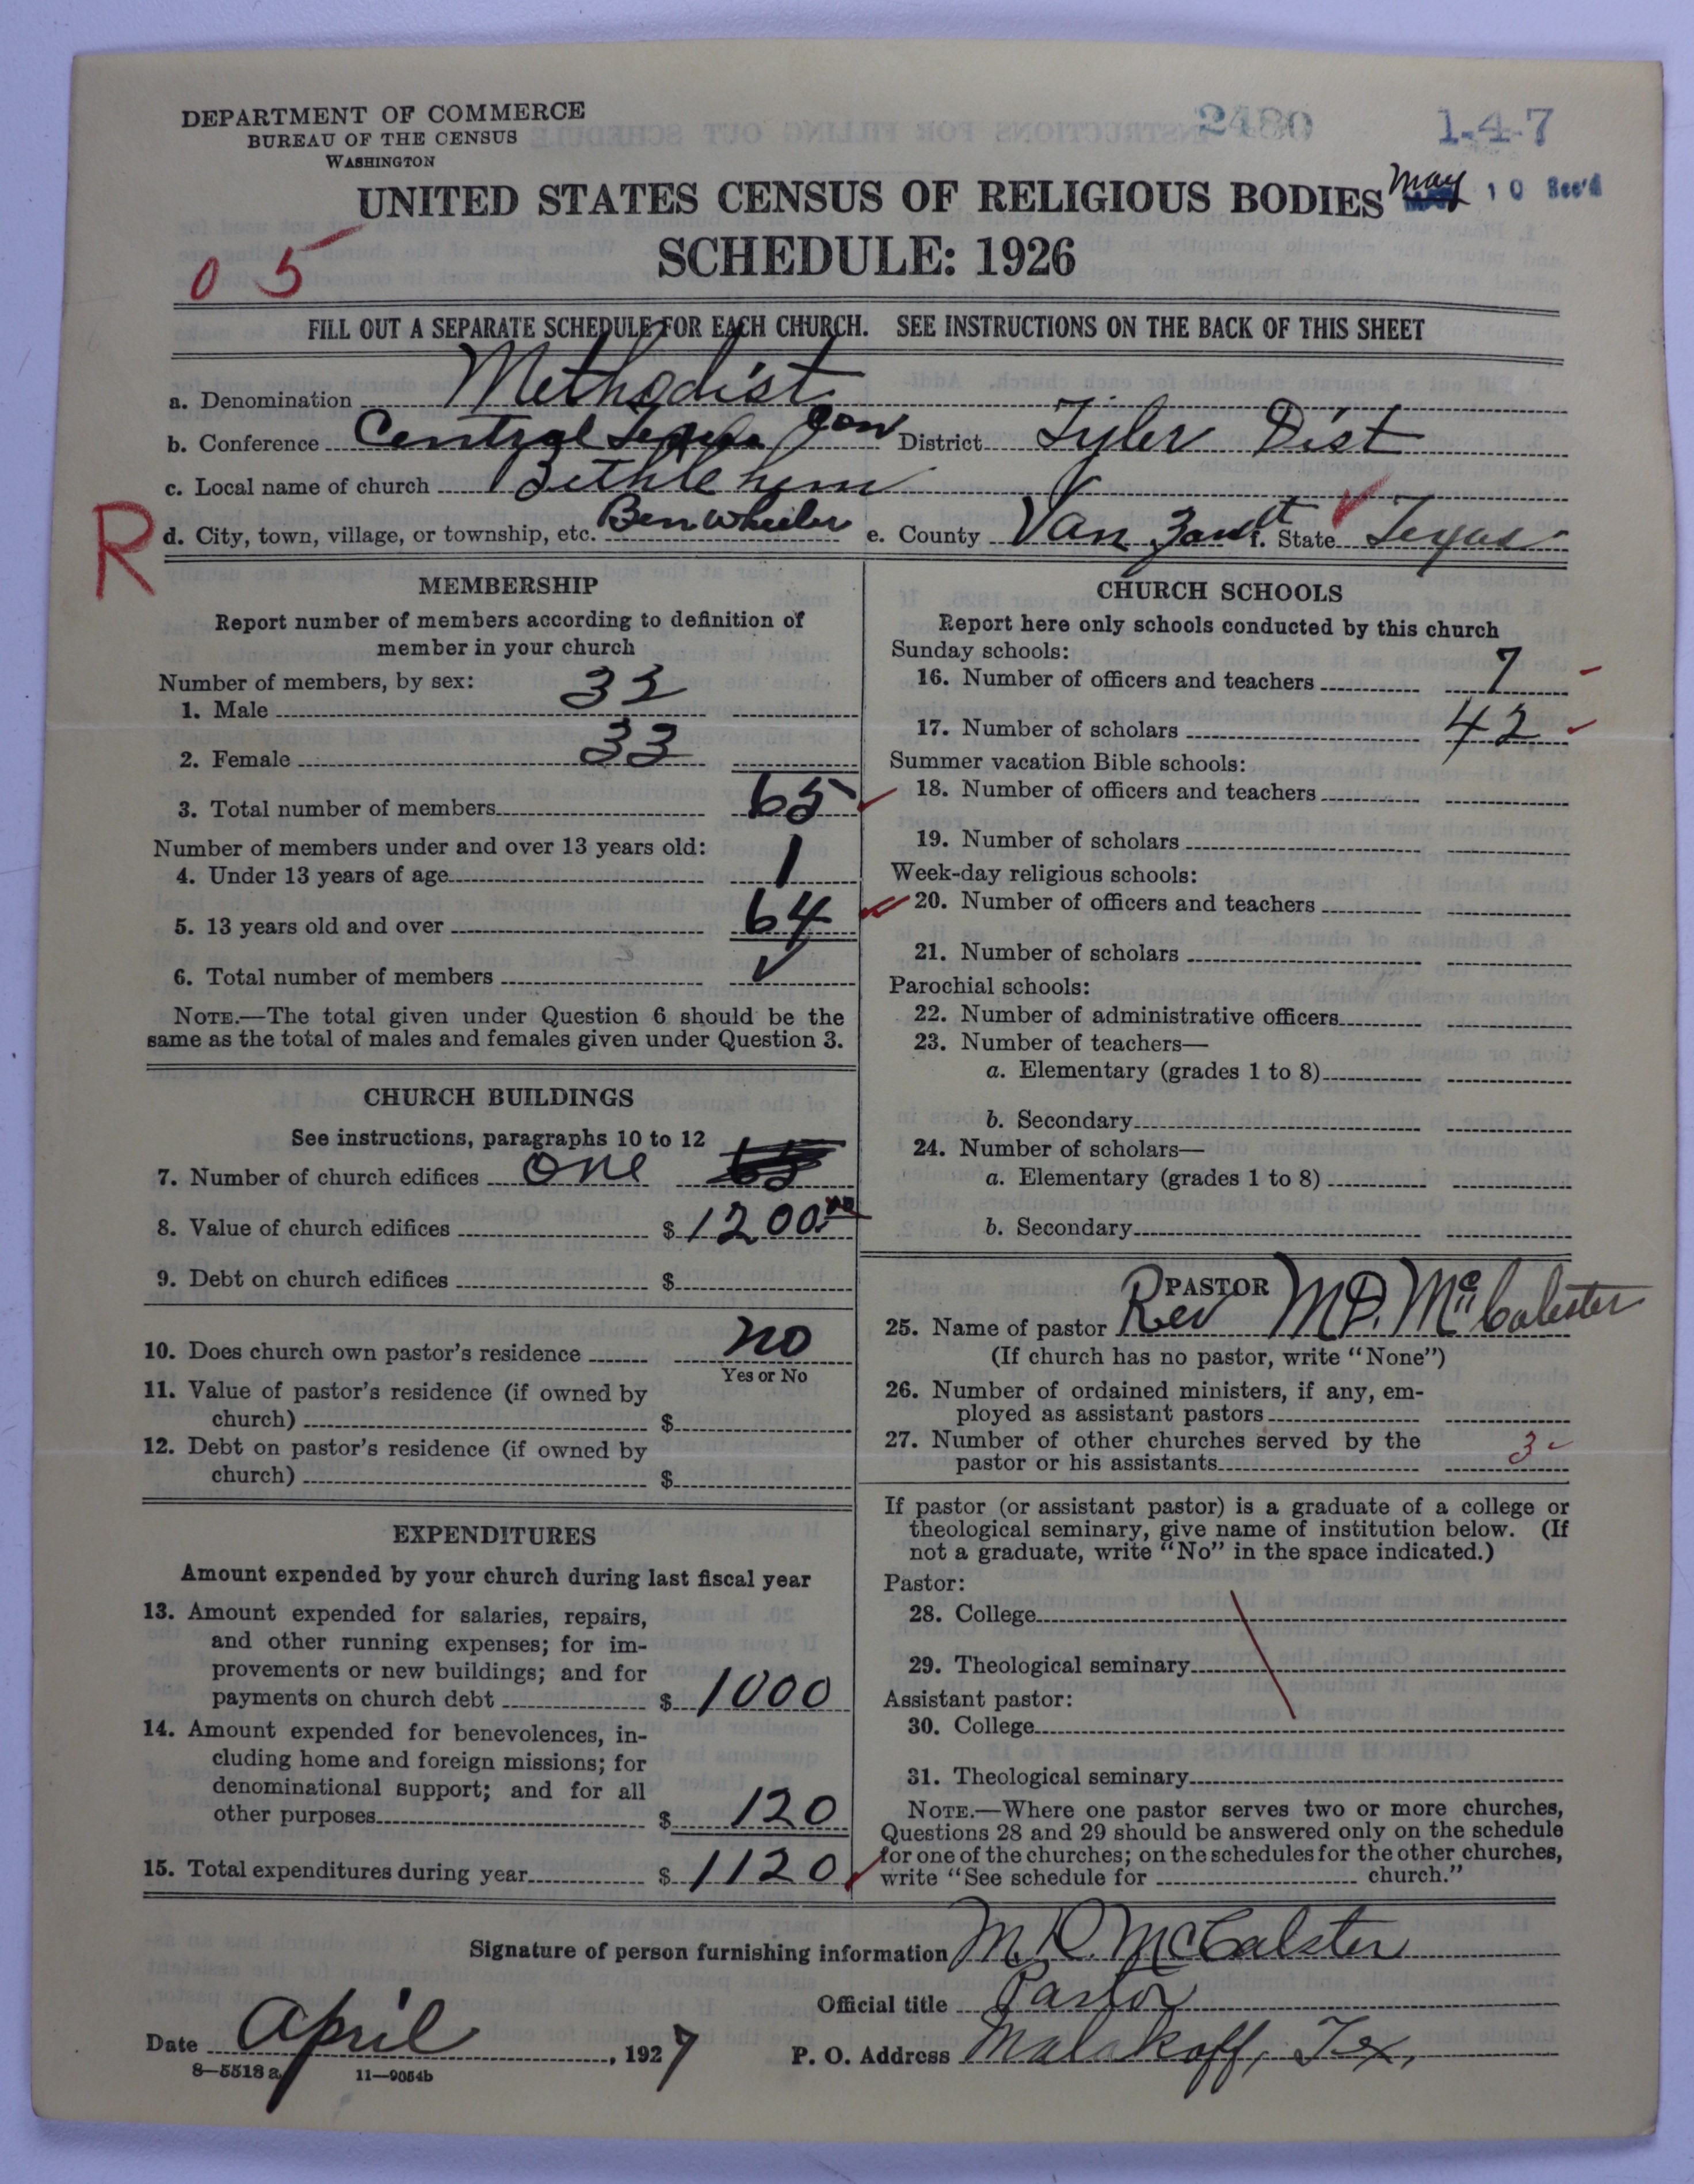 DEPARTMENT OF COMMERCE
BUREAU OF THE CENSUS
WASHINGTON
2480
1-4-7
UNITED STATES CENSUS OF RELIGIOUS BODIES
May 10 Rec'd
SCHEDULE: 1926
05
FILL OUT A SEPARATE SCHEDULE FOR EACH CHURCH. SEE INSTRUCTIONS ON THE BACK OF THIS SHEET
a. Denomination Methodist
b. Conference Central Texas Con District Tyler Dist
c. Local name of church Bethlehem
R
d. City, town, village, or township, etc. Ben Wheeler e. County Van Zandt f. State Texas
MEMBERSHIP
Report number of members according to definition of
member in your church
Number of members, by sex:
1. Male 32
2. Female 33
3. Total number of members 65
Number of members under and over 13 years old:
4. Under 13 years of age 1
5. 13 years old and over 64
6. Total number of members ✓
NOTE.—The total given under Question 6 should be the
same as the total of males and females given under Question 3.
CHURCH BUILDINGS
See instructions, paragraphs 10 to 12
7. Number of church edifices one
8. Value of church edifices $ 1200.00
9. Debt on church edifices $
10. Does church own pastor's residence no
Yes or No
11. Value of pastor's residence (if owned by
church) $
12. Debt on pastor's residence (if owned by
church) $
EXPENDITURES
Amount expended by your church during last fiscal year
13. Amount expended for salaries, repairs,
and other running expenses; for im-
provements or new buildings; and for
payments on church debt $ 1000
14. Amount expended for benevolences, in-
cluding home and foreign missions; for
denominational support; and for all
other purposes $ 120
15. Total expenditures during year $ 1120
CHURCH SCHOOLS
Report here only schools conducted by this church
Sunday schools:
16. Number of officers and teachers 7
17. Number of scholars 42
Summer vacation Bible schools:
18. Number of officers and teachers
19. Number of scholars
Week-day religious schools:
20. Number of officers and teachers
21. Number of scholars
Parochial schools:
22. Number of administrative officers
23. Number of teachers—
a. Elementary (grades 1 to 8)
b. Secondary
24. Number of scholars—
a. Elementary (grades 1 to 8)
b. Secondary
PASTOR
25. Name of pastor Rev M.D. McCalester
(If church has no pastor, write "None")
26. Number of ordained ministers, if any, em-
ployed as assistant pastors
27. Number of other churches served by the
pastor or his assistants 3
If pastor (or assistant pastor) is a graduate of a college or
theological seminary, give name of institution below. (If
not a graduate, write "No" in the space indicated.)
Pastor:
28. College
29. Theological seminary
Assistant pastor:
30. College
31. Theological seminary
NOTE.—Where one pastor serves two or more churches,
Questions 28 and 29 should be answered only on the schedule
for one of the churches; on the schedules for the other churches,
write "See schedule for church."
Signature of person furnishing information M.D. McCalster
Official title Pastor
Date April, 1927 P. O. Address Malakoff, Tex,
8—5518a 11—9054b